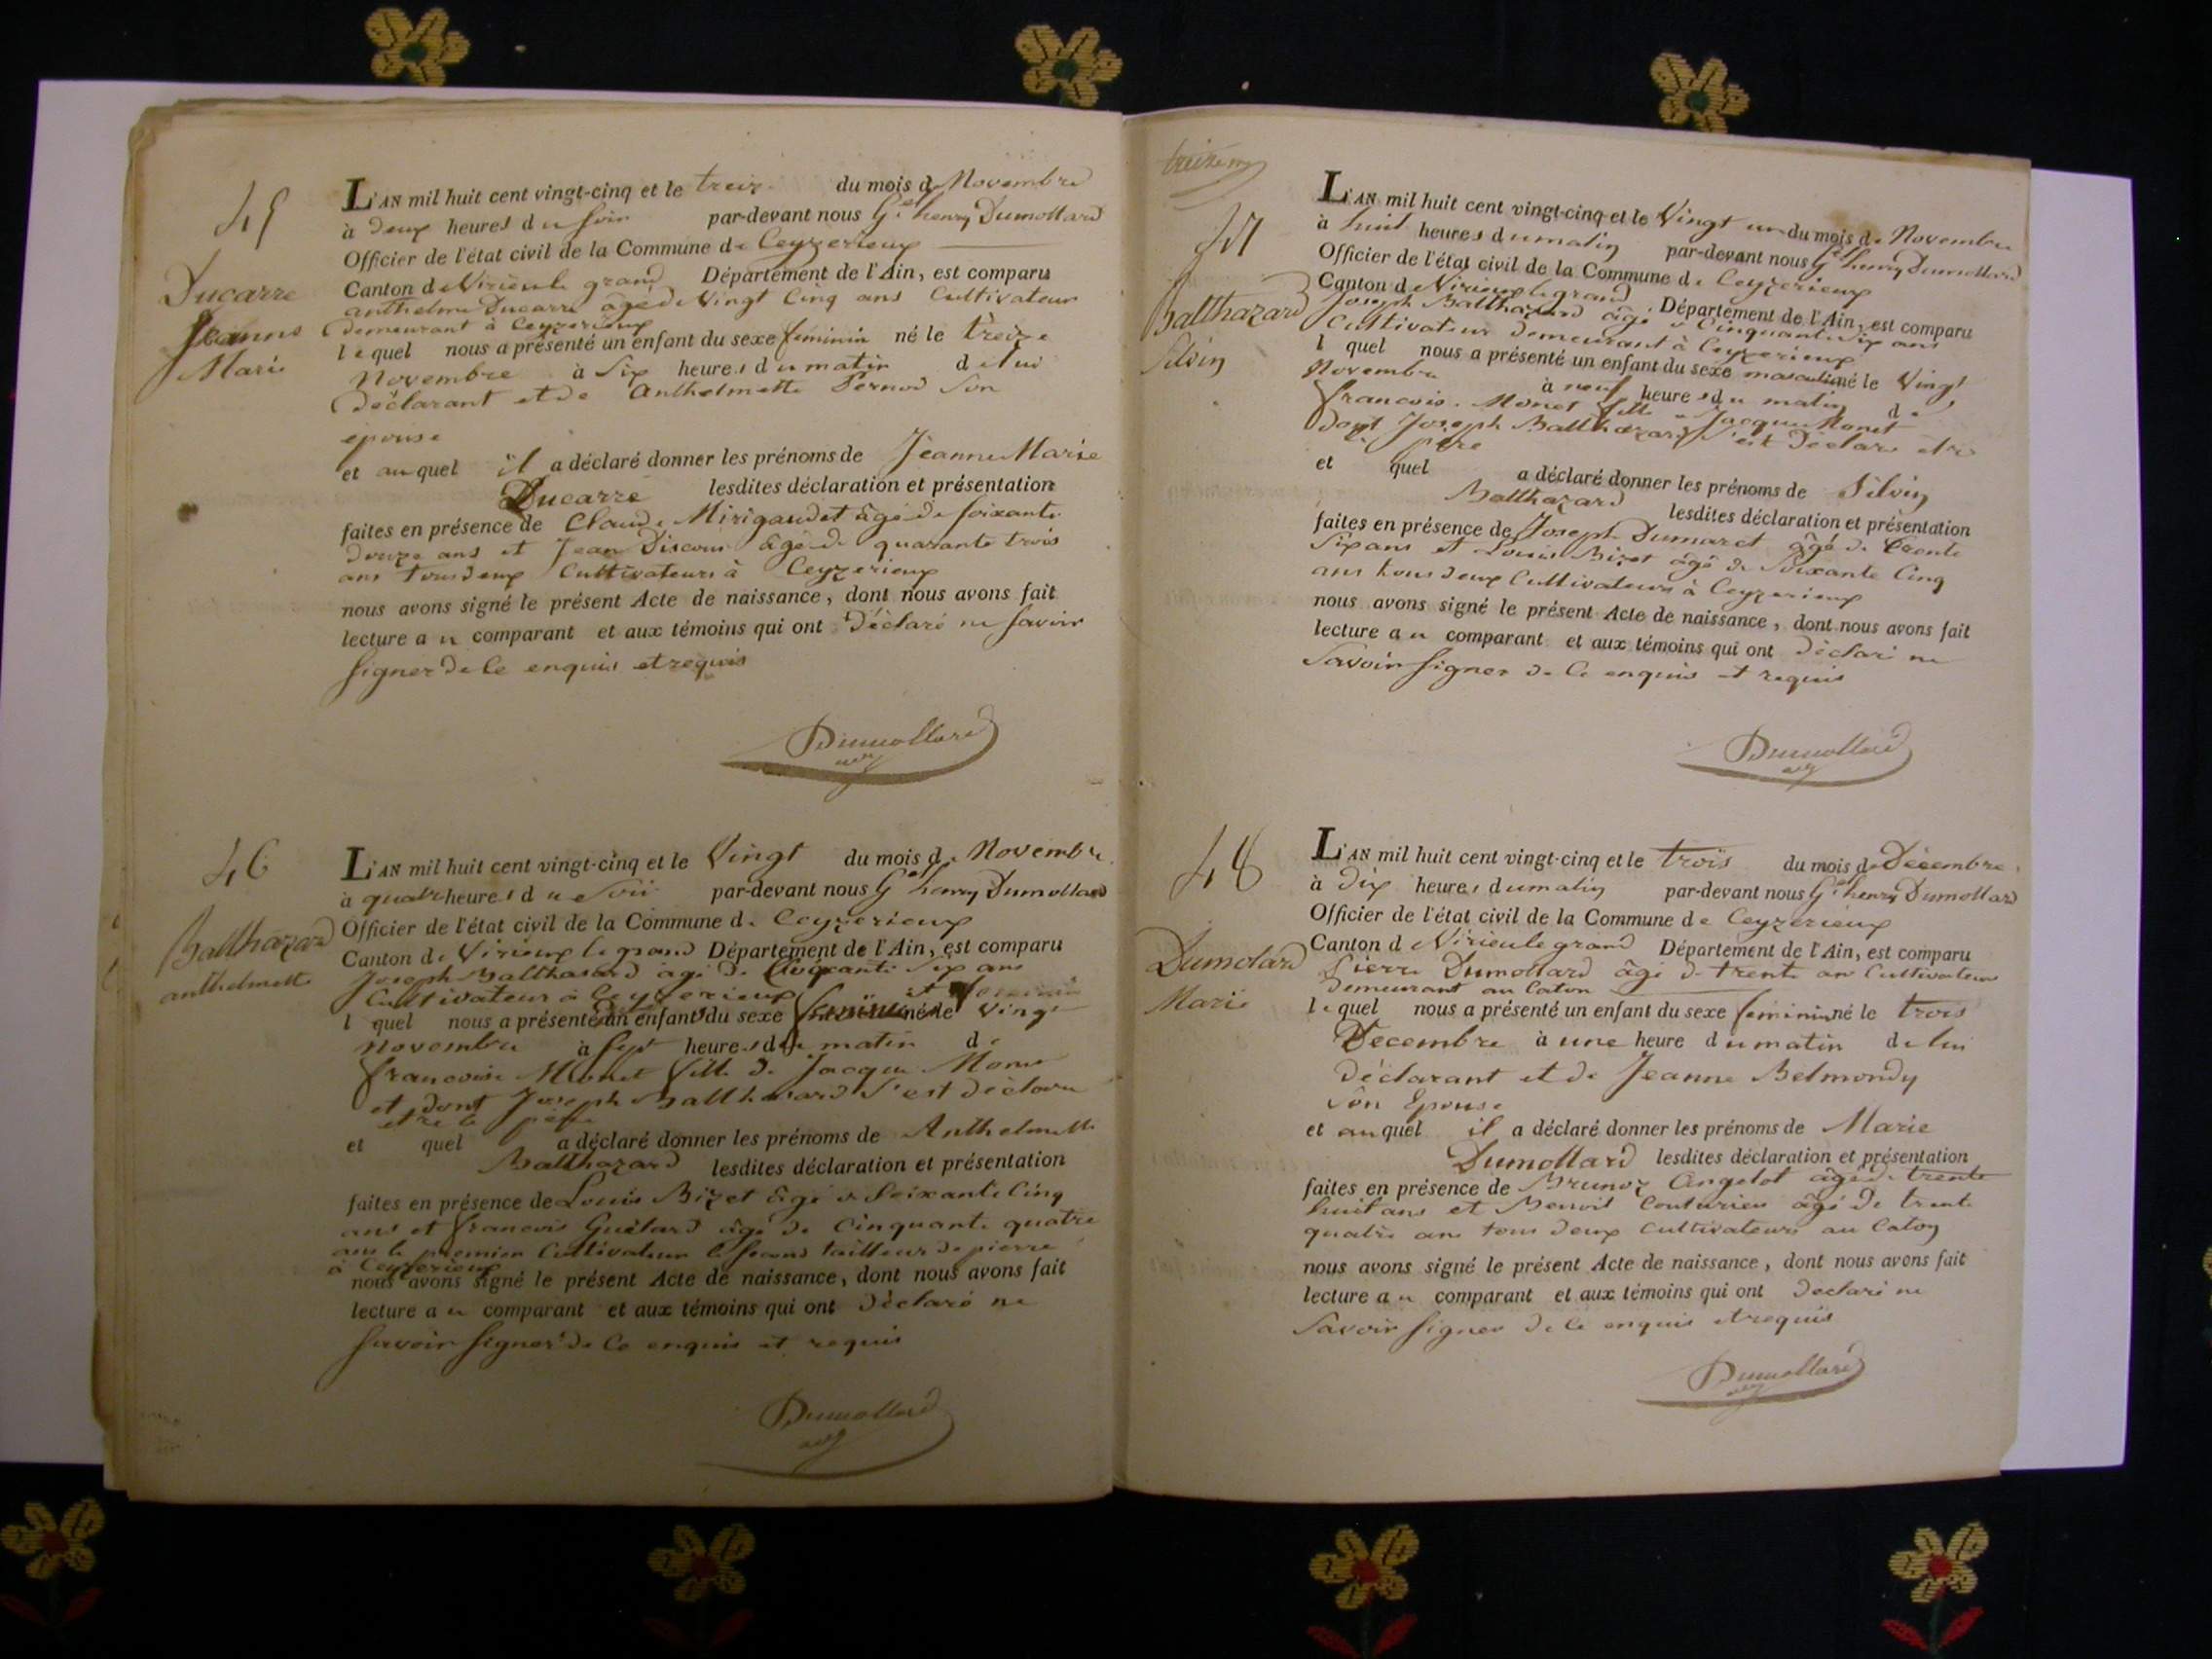 45
Ducarre
Jeanne
Marie
L'AN mil huit cent vingt-cinq et le treize du mois de Novembre
à deux heures du soir par-devant nous Gel henry Dumollard
Officier de l'état civil de la Commune de Ceyzerieux
Canton de Virieule grand Département de l'Ain, est comparu
anthelme Ducarre âgé de Vingt Cinq ans Cultivateur
demeurant à Ceyzerieux
lequel nous a présenté un enfant du sexe feminin né le treize
Novembre à Six heures du matin de lui
déclarant et de Anthelmette Pernod Son
epouse
et auquel il a déclaré donner les prénoms de Jeanne Marie
Ducarre lesdites déclaration et présentation
faites en présence de Claude Mirigaudet âgé de soixante
douze ans et Jean Discour âgé de quarante trois
ans tous deux Cultivateurs à Ceyzerieux
nous avons signé le présent Acte de naissance, dont nous avons fait
lecture au comparant et aux témoins qui ont Déclaré ne Savoir
Signer de Ce enquis et requis
Dumollard
46
Balthazard
anthelmette
L'AN mil huit cent vingt-cinq et le Vingt du mois de Novembre
à quatre heures du Soir par-devant nous Gel henry Dumollard
Officier de l'état civil de la Commune de Ceyzerieux
Canton de Virieux le grand Département de l'Ain, est comparu
Joseph Balthasard âgé de Cinquante Six ans
Cultivateur à Ceyzerieux
l quel nous a présenté un enfant du sexe feminin né le Vingt
novembre à Sept heures du matin de
francoise Monet fille de Jacque Monet
et dont Joseph Balthasard S'est déclaré
etre le père
et quel a déclaré donner les prénoms de Anthelmette
Balthazard lesdites déclaration et présentation
faites en présence de Louis Bizet âgé de Soixante Cinq
ans et francois Guélard âgé de Cinquante quatre
ans le premier Cultivateur le second tailleur de pierre
à Ceyzerieux
nous avons signé le présent Acte de naissance, dont nous avons fait
lecture au comparant et aux témoins qui ont Déclaré ne
Savoir Signer de Ce enquis et requis
Dumollard
47
Balthazard
Silvin
L'AN mil huit cent vingt-cinq et le Vingt un du mois de Novembre
à huit heures du matin par-devant nous Gel henry Dumollard
Officier de l'état civil de la Commune de Ceyzerieux
Canton de Virieux le grand Département de l'Ain, est comparu
Joseph Balthazard âgé de Cinquante Six ans
Cultivateur demeurant à Ceyzerieux
l quel nous a présenté un enfant du sexe masculin né le Vingt
Novembre à neuf heures du matin de
francoise Monet fille de Jacque Monet
dont Joseph Balthazard S'est déclaré etre
le père
et quel a déclaré donner les prénoms de Silvin
Balthazard lesdites déclaration et présentation
faites en présence de Joseph Dumaret âgé de trente
Six ans et Louis Bizet âgé de Soixante Cinq
ans tous deux Cultivateurs à Ceyzerieux
nous avons signé le présent Acte de naissance, dont nous avons fait
lecture au comparant et aux témoins qui ont déclaré ne
Savoir Signer de Ce enquis et requis
Dumollard
48
Dumolard
Marie
L'AN mil huit cent vingt-cinq et le trois du mois de Décembre
à Dix heures du matin par-devant nous Gel henry Dumollard
Officier de l'état civil de la Commune de Ceyzerieux
Canton de Virieule grand Département de l'Ain, est comparu
Pierre Dumollard âgé de trente ans Cultivateur
demeurant au Caton
lequel nous a présenté un enfant du sexe feminin né le trois
Decembre à une heure du matin de lui
Déclarant et de Jeanne Belmondy
Son Epouse
et auquel il a déclaré donner les prénoms de Marie
Dumollard lesdites déclaration et présentation
faites en présence de Brunoz Angelot âgé de trente
huit ans et Benoit Couturieu âgé de trente
quatre ans tous deux Cultivateurs au Caton
nous avons signé le présent Acte de naissance, dont nous avons fait
lecture au comparant et aux témoins qui ont Declaré ne
Savoir Signer de Ce enquis et requis
Dumollard